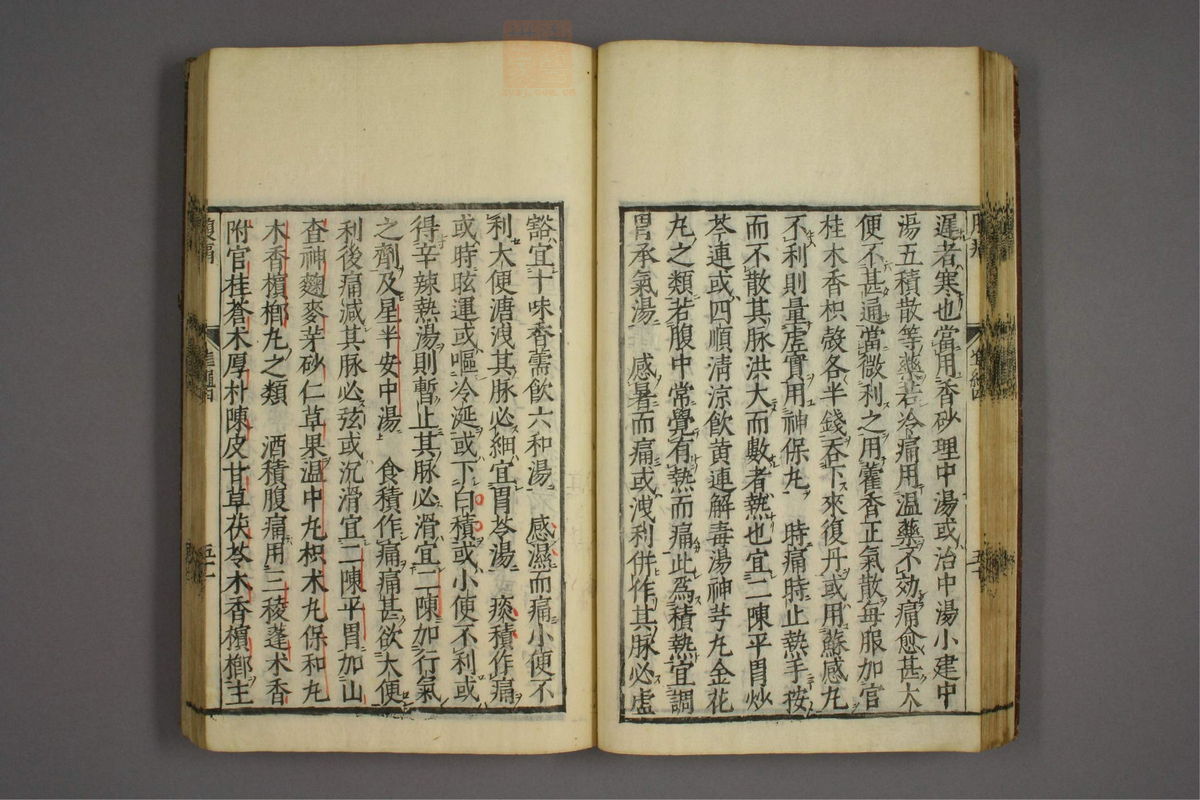 遲者寒也當用香砂理中湯或治中湯小建中
湯五積散等藥若冷痛用温藥不効痛愈甚大
便不甚通當微利之用藿香正氣散每服加官
桂木香枳殼各半錢吞下來復丹或用蘇感丸
不利則量虛實用神保丸 時痛時止熱手按
而不散其脉洪大而數者熱也宜二陳平胃炒
芩連或四順淸涼飲黄連解毒湯神芎丸金花
丸之類若腹中常覺有熱而痛此爲積熱宜調
胃承氣湯 感暑而痛或洩利併作其脉必虛
豁宜十味香薷飲六和湯 感濕而痛小便不
利大便溏洩其脉必細宜胃苓湯 痰積作痛
或時眩運或嘔冷涎或下白積或小便不利或
得辛辣熱湯則暫止其脉必滑宜二陳加行氣
之劑及星半安中湯 食積作痛痛甚欲大便
利後痛減其脉必弦或沉滑宜二陳平胃加山
査神麯麥芽砂仁草果温中丸枳术丸保和丸
木香檳榔丸之類 酒積腹痛用三稜蓬术香
附官桂蒼木厚朴陳皮甘草茯苓木香檳榔主